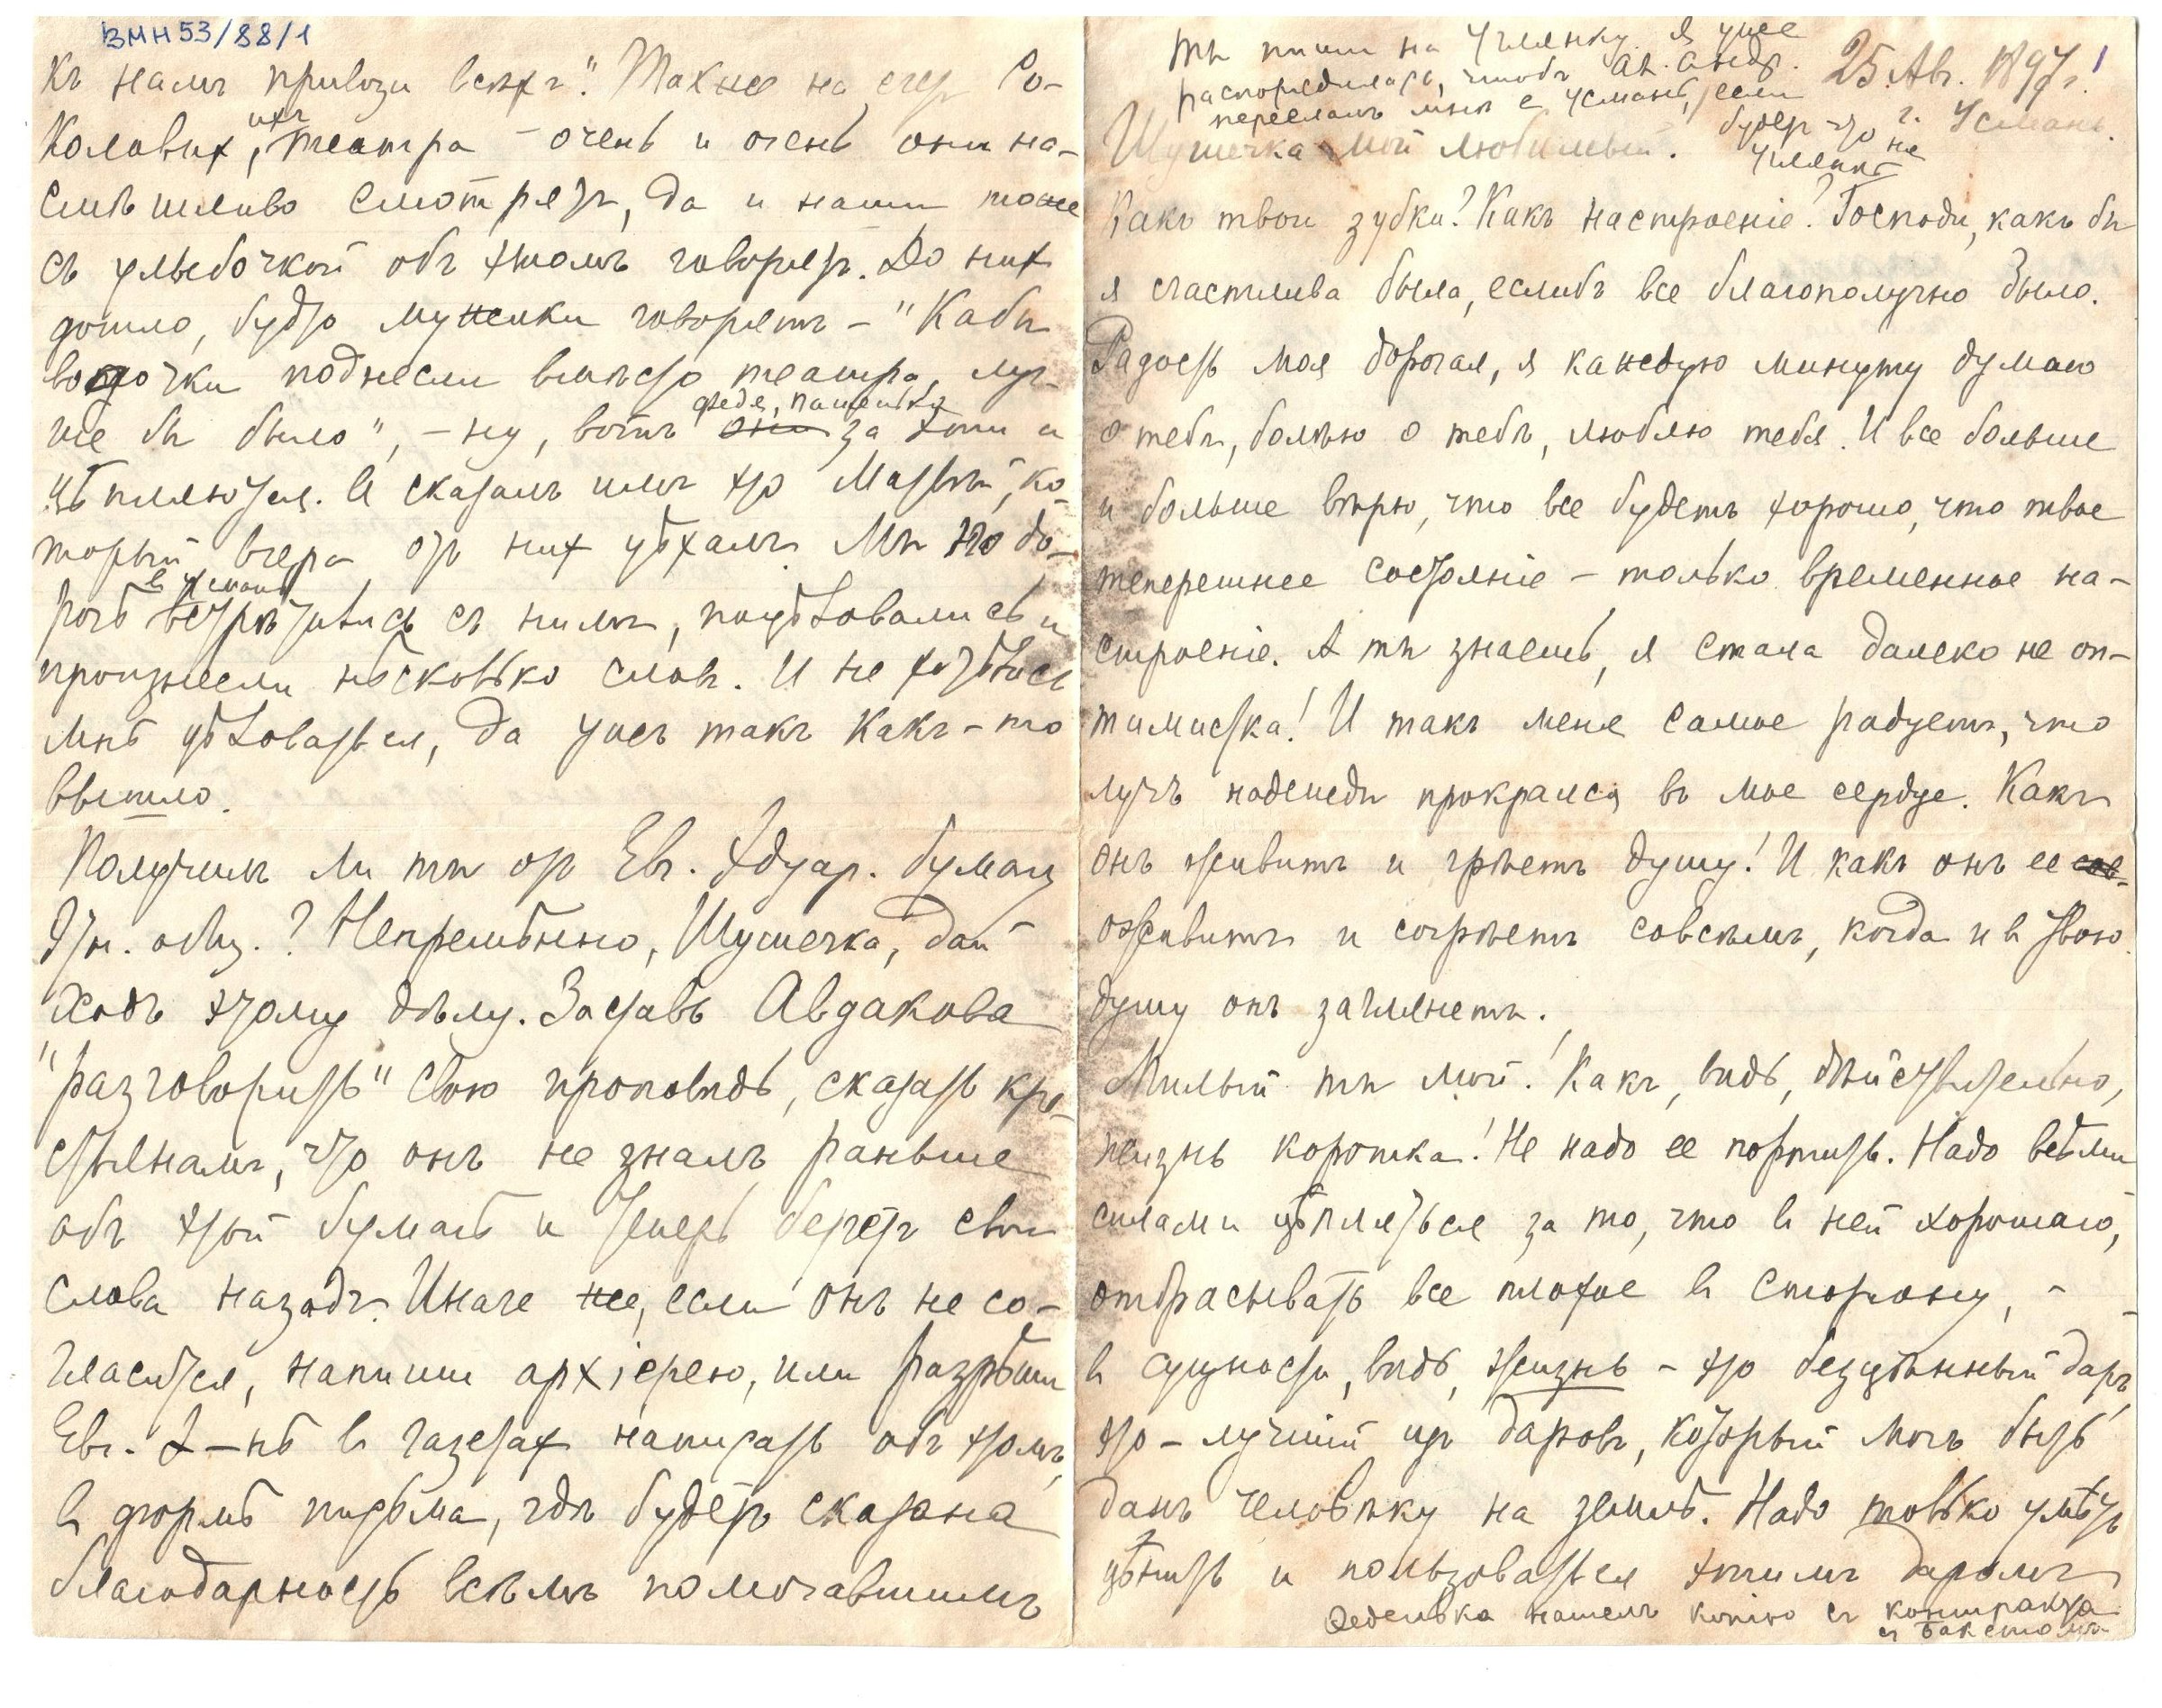 ВМН53/88/1
Къ намъ привози всѣхъ". Также на счетъ Со-
коловых, ихъ театра – очень и очень они на-
смѣшливо смотрятъ, да и наши тоже
съ улыбочкой объ этомъ говорятъ. До них
дошло, будто мужики говорятъ – "Кабы
водочки поднесли вмѣсто театра, луч-
ше бы было", – ну, вотъ они Федя, Пашенька за это и
цѣпляются. И сказалъ имъ это Матвѣй, ко-
торый вчера от них уѣхалъ. Мы по до-
рогѣ в Усмань встрѣтились съ нимъ, поцѣловались и
произнесли нѣсколько словъ. И не хотѣлось
мнѣ цѣловаться, да ужъ такъ какъ-то
вышло.
Получилъ ли ты от Евг. Эдуар. бумагу
Зем. общ.? Непремѣнно, Шушечка, дай
ходъ этому дѣлу. Заставь Авдакова
"разговорить" свою проповѣдь, сказать кре-
стьянамъ, что онъ не зналъ раньше
объ этой бумагѣ и теперь беретъ свои
слова назадъ. Иначе же, если онъ не со-
гласится, напиши архіерею, или разрѣши
Евг. Э–чѣ в газетах написать объ этомъ,
в формѣ письма, гдѣ будетъ сказана
благодарность всѣмъ помогавшимъ
ты пиши на Углянку. Я уже
распорядилась, чтобъ Ал. Андр.
переслалъ мнѣ в Усмань, если
будет что на
Углянкѣ
25 Авг. 1897 г.
г. Усмань.
Шушечка мой любимый.
Какъ твои зубки? Какъ настроеніе? Господи, какъ бы
я счастлива была, еслибъ все благополучно было.
Радость моя дорогая, я каждую минуту думаю
о тебѣ, болѣю о тебѣ, люблю тебя. И все больше
и больше вѣрю, что все будетъ хорошо, что твое
теперешнее состояніе – только временное на-
строеніе. А ты знаешь, я стала далеко не оп-
тимистка! И такъ меня самое радуетъ, что
лучъ надежды прокрался въ мое сердце. Какъ
онъ живитъ и грѣетъ душу! И какъ онъ ее сов-
оживитъ и согрѣетъ совсѣмъ, когда и в твою
душу онъ заглянетъ.
Милый ты мой! Какъ, вѣдь, дѣйствительно,
жизнь коротка! Не надо ее портить. Надо всѣми
силами цѣпляться за то, что в ней хорошаго,
отбрасывать все плохое в сторону, –
в сущности, вѣдь, жизнь – это безцѣнный даръ,
это – лучшій из даровъ, который могъ быть
данъ человѣку на землѣ. Надо только умѣть
цѣнить и пользоваться этимъ даромъ
Феденька нашелъ копію съ контракта
съ Бакстомъ